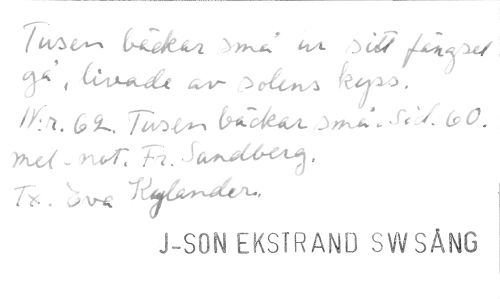 Tusen bäckar små ur sitt fängsel
gå, livade av solens kyss.
N:r. 62. Tusen bäckar små. Sid. 60.
mel. not. Fr. Sandberg.
Tx. Ova Kylander.
J-SON EKSTRAND SW SÅNG